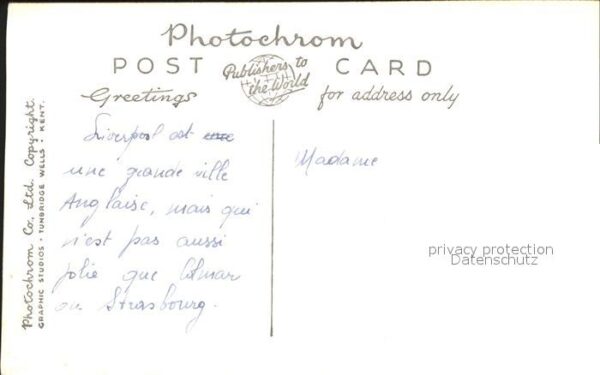 Photochrom
POST CARD
Publishers to
the World
Greetings
for address only
Photochrom Co., Ltd. Copyright.
GRAPHIC STUDIOS • TUNBRIDGE WELLS • KENT.
Liverpool est
une grande ville
Anglaise, mais qui
n'est pas aussi
jolie que Colmar
ou Strasbourg.
Madame
privacy protection
Datenschutz